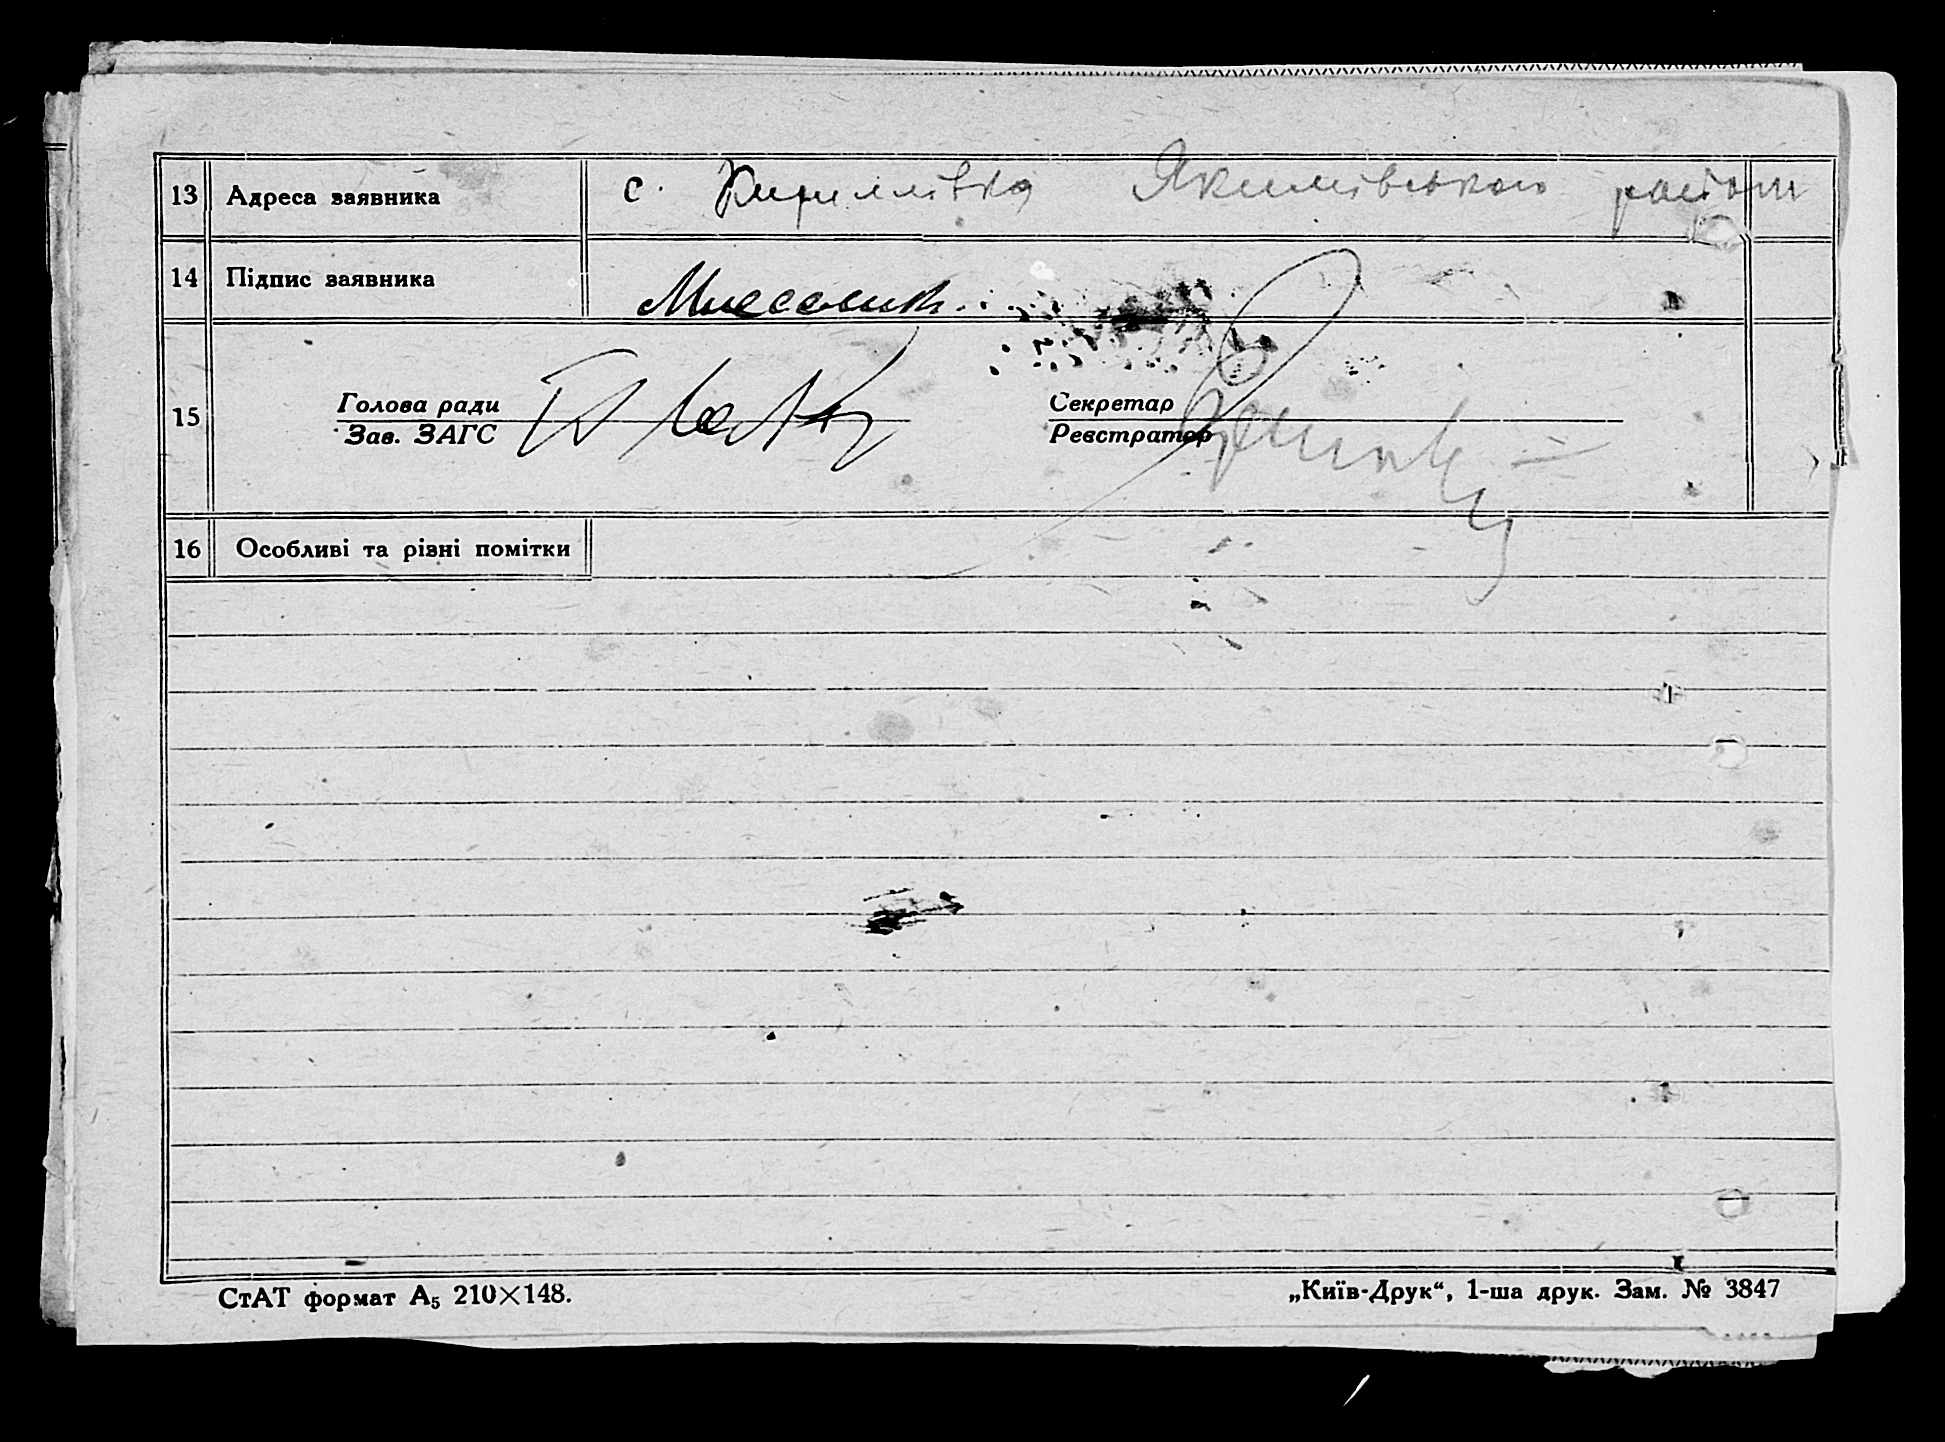 13 Адреса заявника с. Кириллівка Якимівського району
14 Підпис заявника
15 Голова ради Секретар
Зав. ЗАГС Реєстратор
16 Особливі та різні помітки
СтАТ формат А₅ 210×148. „Київ-Друк“, 1-ша друк. Зам. № 3847